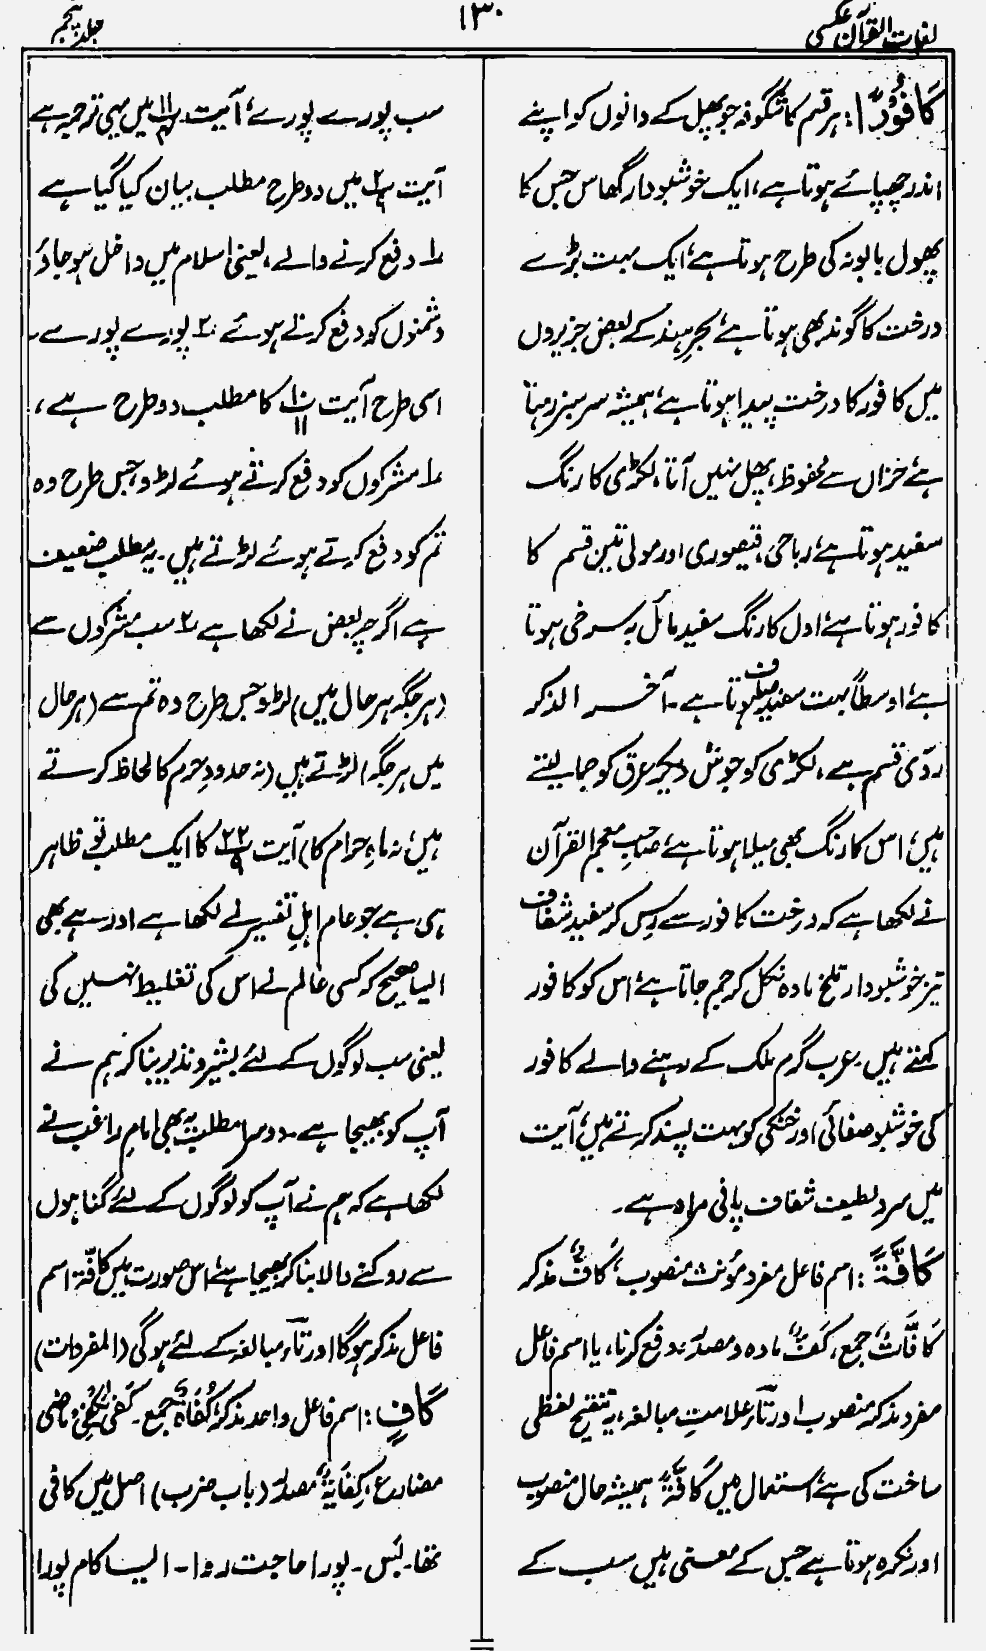 لغات القرآن عکسی
۱۳۰
جلد پنجم
کَافُوْرًا: ہر قسم کا شگوفہ جو پھل کے دانوں کو اپنے
اندر چھپائے ہوتا ہے، ایک خوشبودار گھاس جس کا
پھول بابونہ کی طرح ہوتا ہے، ایک بہت بڑے
درخت کا گوند بھی ہوتا ہے، بحرِ ہند کے بعض جزیروں
میں کافور کا درخت پیدا ہوتا ہے، ہمیشہ سرسبز رہتا
ہے، خزاں سے محفوظ، پھل نہیں آتا، لکڑی کا رنگ
سفید ہوتا ہے، رباحی، قیصوری اور مولی تین قسم کا
کافور ہوتا ہے، اول کا رنگ سفید مائل بہ سرخی ہوتا
ہے، اوسطاً بہت سفید ہوتا ہے۔ آخر الذکر
ردّی قسم ہے، لکڑی کو جوش دیکر عرق کو جما لیتے
ہیں، اس کا رنگ بھی میلا ہوتا ہے، صاحبِ معجم القرآن
نے لکھا ہے کہ درخت کافور سے رِس کر سفید شفاف
تیز خوشبودار تلخ مادہ نکل کر جم جاتا ہے، اس کو کافور
کہتے ہیں۔ عرب گرم ملک کے رہنے والے کافور
کی خوشبو صفائی اور خنکی کو بہت پسند کرتے ہیں، آیت
میں سرد لطیف شفاف پانی مراد ہے۔
کَافَّۃً: اسم فاعل مفرد مؤنث منصوب، کَافٌّ مذکر
کَافَّاتٌ جمع، کَفٌّ مادہ و مصدر، دفع کرنا، یا اسم فاعل
مفرد مذکر منصوب اور تاء علامتِ مبالغہ، یہ تنقیح لفظی
ساخت کی ہے، استعمال میں کَافَّۃً ہمیشہ حال منصوب
اور نکرہ ہوتا ہے جس کے معنی ہیں سب کے
سب پورے پورے، آیت میں یہی ترجمہ ہے
آیت میں دو طرح مطلب بیان کیا گیا ہے
۱؎ دفع کرنے والے، یعنی اسلام میں داخل ہو جاؤ
دشمنوں کو دفع کرتے ہوئے ۲؎ پورے پورے۔
اسی طرح آیت کا مطلب دو طرح ہے،
۱؎ مشرکوں کو دفع کرتے ہوئے لڑو جس طرح وہ
تم کو دفع کرتے ہوئے لڑتے ہیں۔ یہ مطلب ضعیف
ہے اگرچہ بعض نے لکھا ہے ۲؎ سب مشرکوں سے
(ہر جگہ ہر حال میں) لڑو جس طرح وہ تم سے (ہر حال
میں ہر جگہ) لڑتے ہیں (نہ حدودِ حرم کا لحاظ کرتے
ہیں، نہ ماہِ حرام کا) آیت کا ایک مطلب تو ظاہر
ہی ہے جو عام اہلِ تفسیر نے لکھا ہے اور ہے بھی
ایسا صحیح کہ کسی عالم نے اس کی تغلیط نہیں کی
یعنی سب لوگوں کے لئے بشیر و نذیر بنا کر ہم نے
آپ کو بھیجا ہے۔ دوسرا مطلب یہ بھی امام راغب نے
لکھا ہے کہ ہم نے آپ کو لوگوں کے لئے گناہوں
سے روکنے والا بنا کر بھیجا ہے، اس صورت میں کافّۃ اسم
فاعل مذکر ہوگا اور تاء مبالغہ کے لئے ہوگی (المفردات)
کَافٍ: اسم فاعل واحد مذکر، کُفَاۃٌ جمع۔ کَفٰی یَکْفِیْ ماضی
مضارع، کِفَایَۃٌ مصدر (باب ضرب) اصل میں کافی
تھا۔ بَس۔ پورا حاجت روا۔ ایسا کام پورا